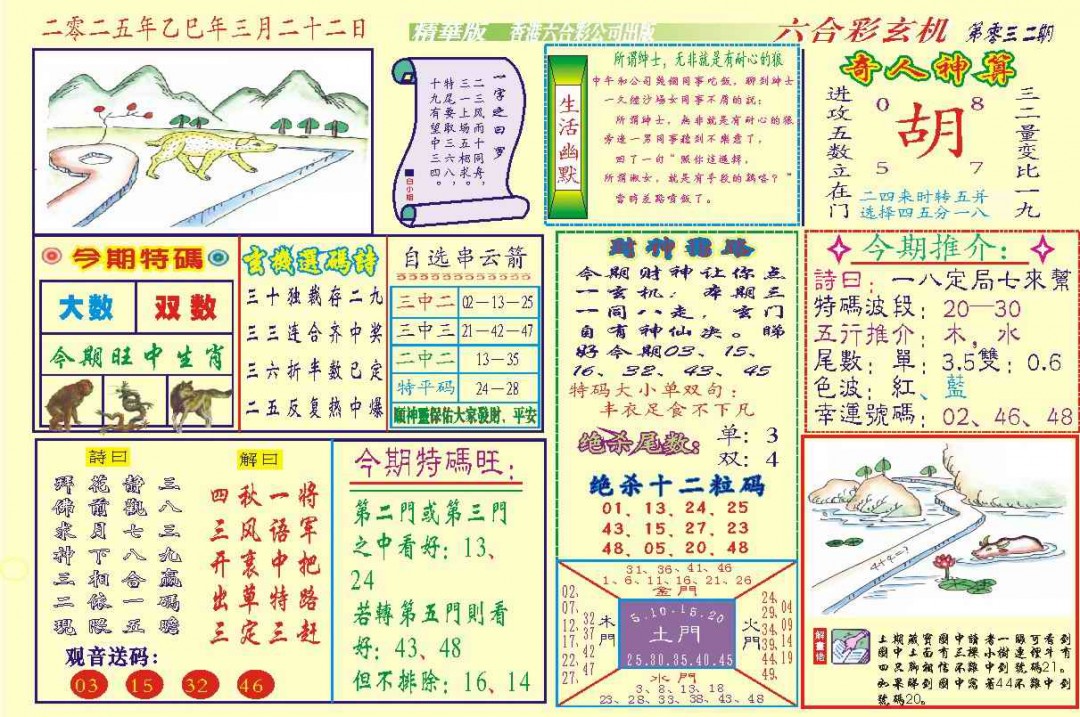 二零二五年乙巳年三月二十二日
精華版 香港六合彩公司出版
六合彩玄机 第零三二期
一字之曰 罗
二三风雨十同舟，
三一上场五相求。
特尾要取三六八，
十九有望中三四。
白小姐
生活幽默
所谓绅士，无非就是有耐心的狼
中午和公司兩個同事吃飯，聊到紳士
一久經沙場女同事不屑的說：
所謂紳士，無非就是有耐心的狼
旁邊一男同事聽到不樂意了，
回了一句"照你這邏輯，
所謂淑女，就是有手段的鷄嘍？"
當時差點噴飯了。
奇人神算
进攻五数立在门
0 8
胡
5 7
三二量变比一九
二四来时转五并
选择四五分一八
今期特碼
大数 双数
今期旺中生肖
玄機選碼詩
三十独裁存二九
三三连合齐中奖
三六折半数已定
二五反复热中爆
自选串云箭
三中二 02—13—25
三中三 21—42—47
二中二 13—35
特平码 24—28
順神靈保佑大家發財、平安
今期财神让你点
一玄机：本期三
一同八走，玄门
自有神仙决。睇
好今期03、15、
16、32、43、45
特码大小单双句：
丰衣足食不下凡
绝杀尾数：
单：3
双：4
绝杀十二粒码
01、13、24、25
43、15、27、23
48、05、20、48
今期推介：
詩曰：一八定局七來幫
特碼波段：20—30
五行推介：木，水
尾數；單：3.5雙；0.6
色波；紅、藍
幸運號碼：02、46、48
詩曰
三八三九贏碼瞻
靜觀七八合一五
花前月下相依隈
拜佛求神三二現
解曰
将军把路赶
一语中特三
秋风裏草定
四三开出三
观音送码：
03 15 32 46
今期特碼旺：
第二門或第三門
之中看好：13、
24
若轉第五門則看
好：43、48
但不排除：16、14
31、36、41、46
1、6、11、16、21、26
金門
02、07、12、17、22、27、
32、37、42、47
木門
5.10.15.20
土門
25.30.35.40.45
火門
24、29、34、39、44、49、
04、09、14、19
水門
3、8、13、18
23、28、33、38、43、48、
4+4=?
解畫佬
上期藏寶圖中讀者一眼可看到
圖中上面有三棵小樹連裡牛有
四只腳相信不難中到號碼21。
如果睇到圖中寫著44不難中到
號碼20。